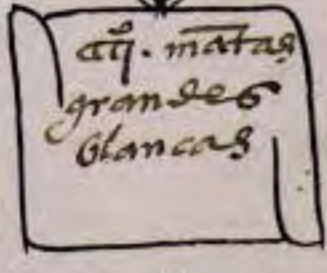 mātas
grandes
blancas